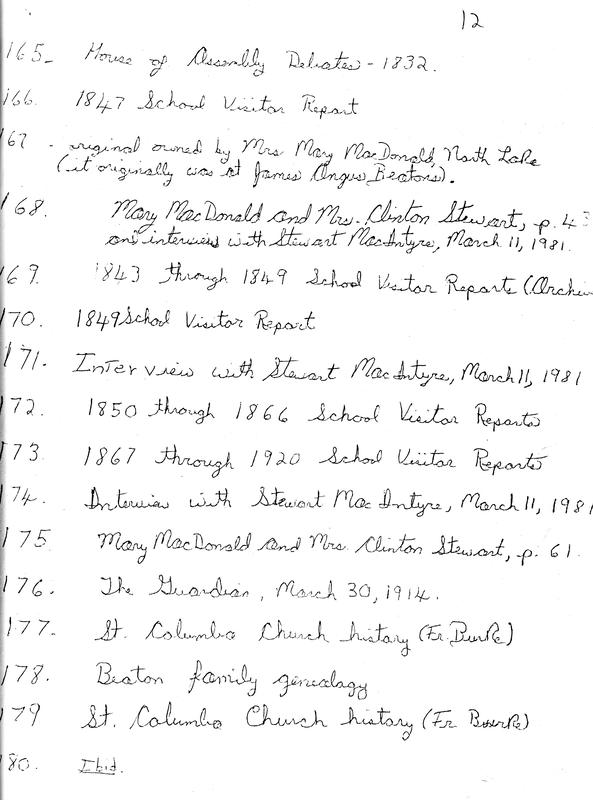 12
165- House of Assembly Debates - 1832.
166. 1847 School Visitor Report
167 - original owned by Mrs Mary MacDonald, North Lake
(it originally was at James Angus Beatons).
168. Mary MacDonald and Mrs. Clinton Stewart, p. 43
and interview with Stewart MacIntyre, March 11, 1981.
169. 1843 through 1849 School Visitor Reports (Archiv
170. 1849 School Visitor Report
171. Interview with Stewart MacIntyre, March 11, 1981
172. 1850 through 1866 School Visitor Reports
173. 1867 through 1920 School Visitor Reports
174. Interview with Stewart MacIntyre, March 11, 1981
175 Mary MacDonald and Mrs. Clinton Stewart, p. 61.
176. The Guardian, March 30, 1914.
177. St. Columba Church history (Fr. Burke)
178. Beaton family genealogy
179 St. Columba Church history (Fr Burke)
180. Ibid.